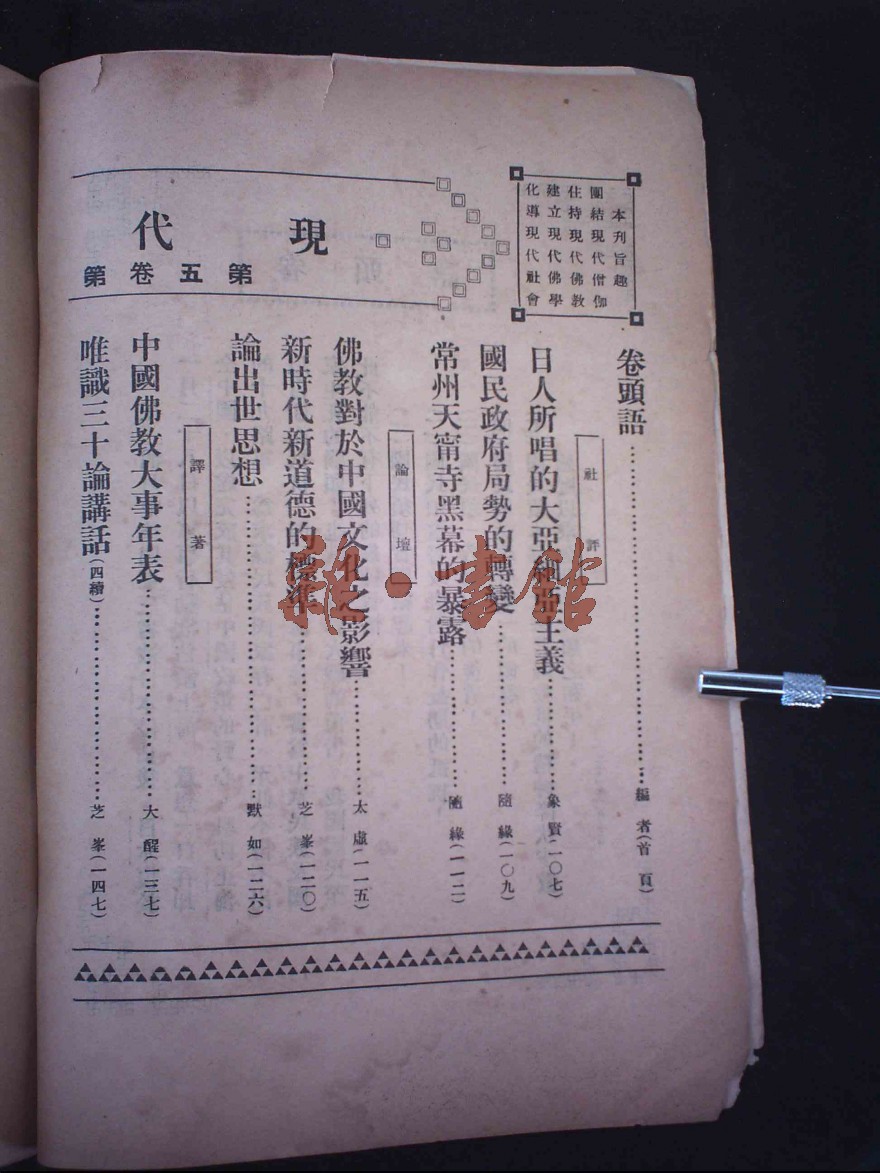 本刊旨趣
團結現代僧伽
住持現代佛教
建立現代佛學
化導現代社會
現代
第五卷第
卷頭語……編者(首頁)
社評
日人所唱的大亞細亞主義……象賢(一〇七)
國民政府局勢的轉變……隨緣(一〇九)
常州天甯寺黑幕的暴露……隨緣(一一二)
論壇
佛教對於中國文化之影響……太虛(一一五)
新時代新道德的標準……芝峯(一二〇)
論出世思想……默如(一二六)
譯著
中國佛教大事年表……大醒(一三七)
唯識三十論講話(四續)……芝峯(一四七)
雜·書館